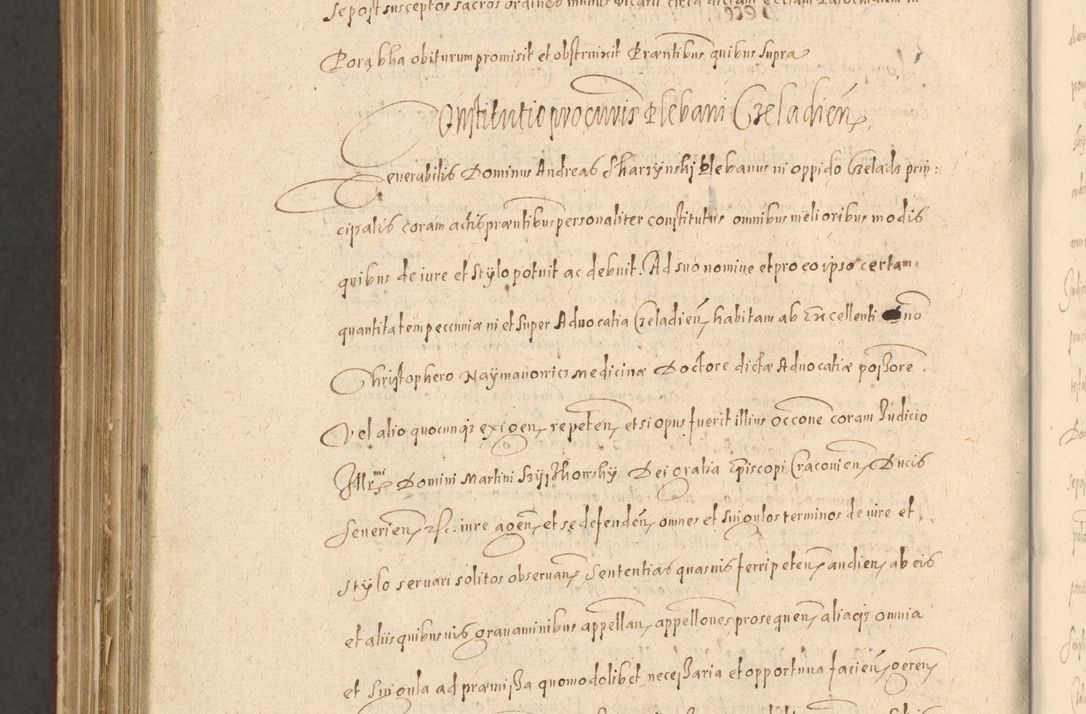 se post susceptos sacros ordines munus vicarii circa dictam Ecclam Parochialem in
Porąbka obiturum promisit et obstrinxit Præntibus quibus supra
Constitutio procuris Plebani Czeladien
Venerabilis Dominus Andreas Skarzynski Plebanus in oppido Czeladz prin:
cipalis coram actis præntibus personaliter constitutus omnibus melioribus modis
quibus de iure et stylo potuit ac debuit. Ad suo nomine et pro eo ipso certam
quantitatem pecuniæ in et super Aduocatia Czeladien habitam ab Excellenti Dno
Christophero Naymanowicz Medicinæ Doctore dictæ Aduocatiæ poßore
Vel alio quocunqs exigen repeten et si opus fuerit illius occone coram Judicio
Illrmi Domini Martini Szyszkowsky Dei gratia Episcopi Cracouien Ducis
Seuerien &c. iure agen et se defenden omnes et singulos terminos de iure et
stylo seruari solitos obseruan Sententias quasuis ferri peten audien ab eis
et aliis quibusuis grauaminibus appellan appellones prosequen aliaqs omnia
et singula ad præmißa quomodolibet neceßaria et opportuna facien geren